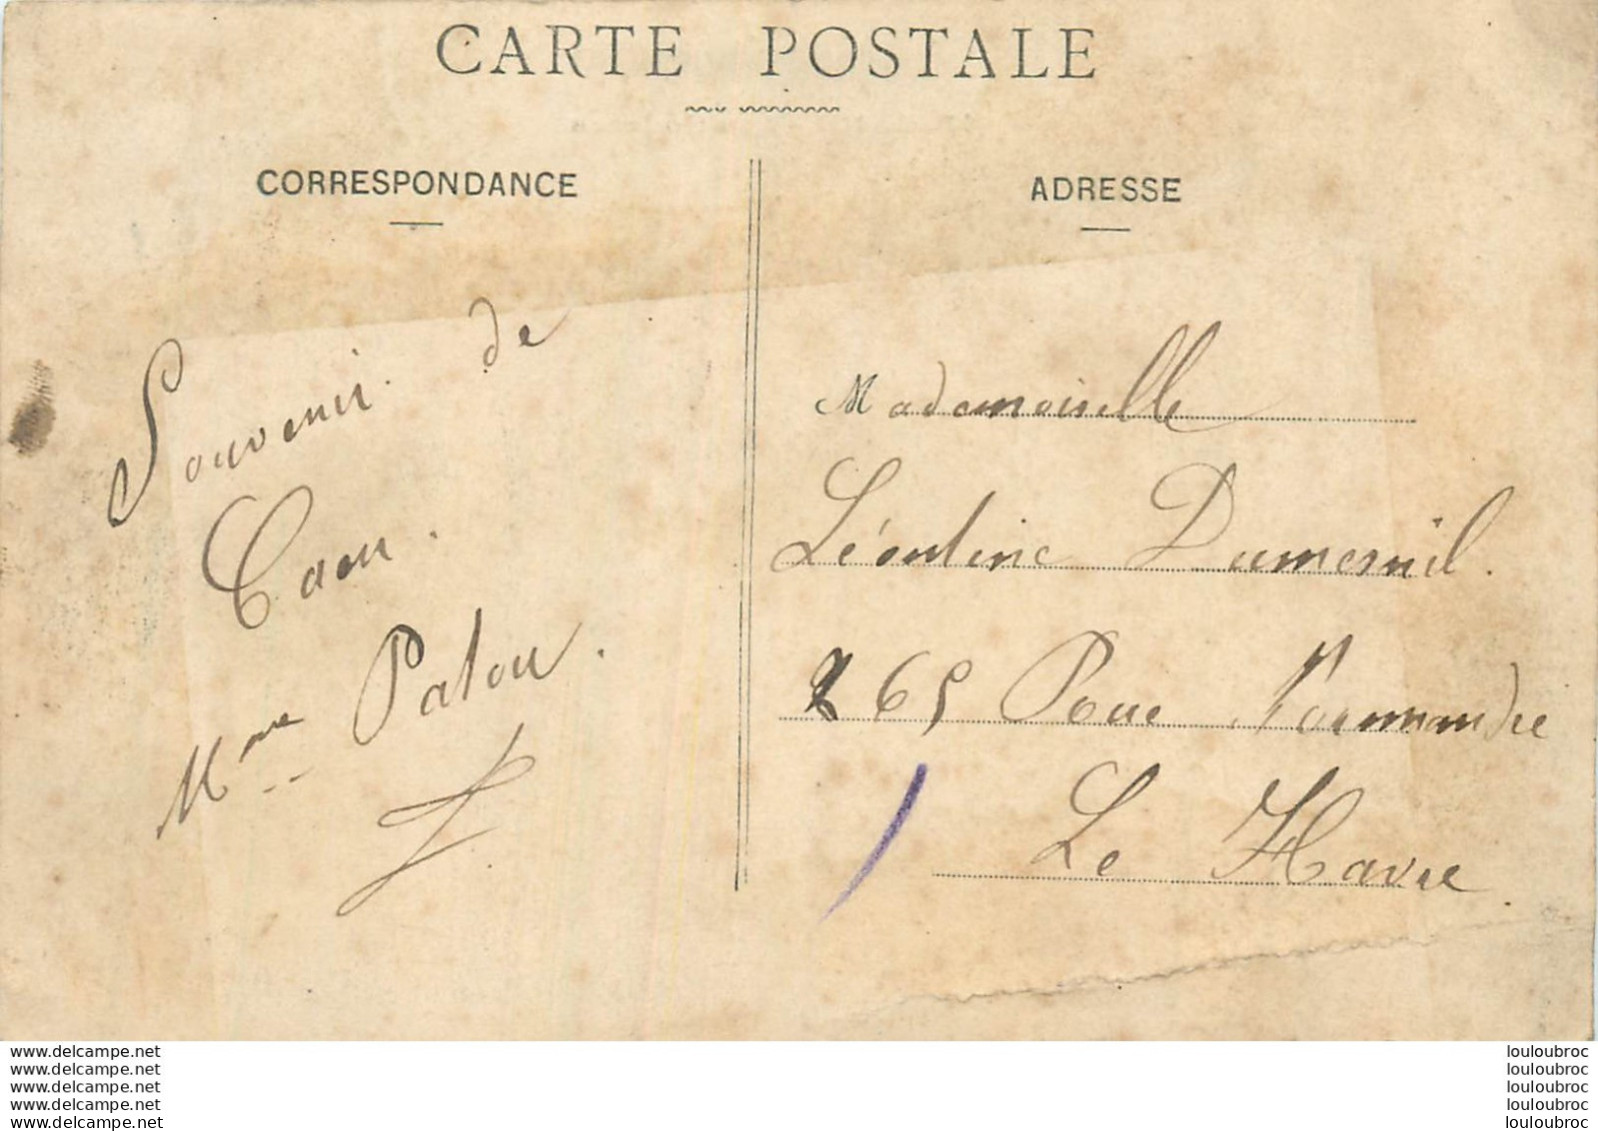 CARTE POSTALE
CORRESPONDANCE
Souvenir de
Caen.
Mme Patou.
ADRESSE
Mademoiselle
Léontine Dumesnil.
265 Rue Normandie
Le Havre
www.delcampe.net
www.delcampe.net
www.delcampe.net
www.delcampe.net
www.delcampe.net
louloubroc
louloubroc
louloubroc
louloubroc
louloubroc